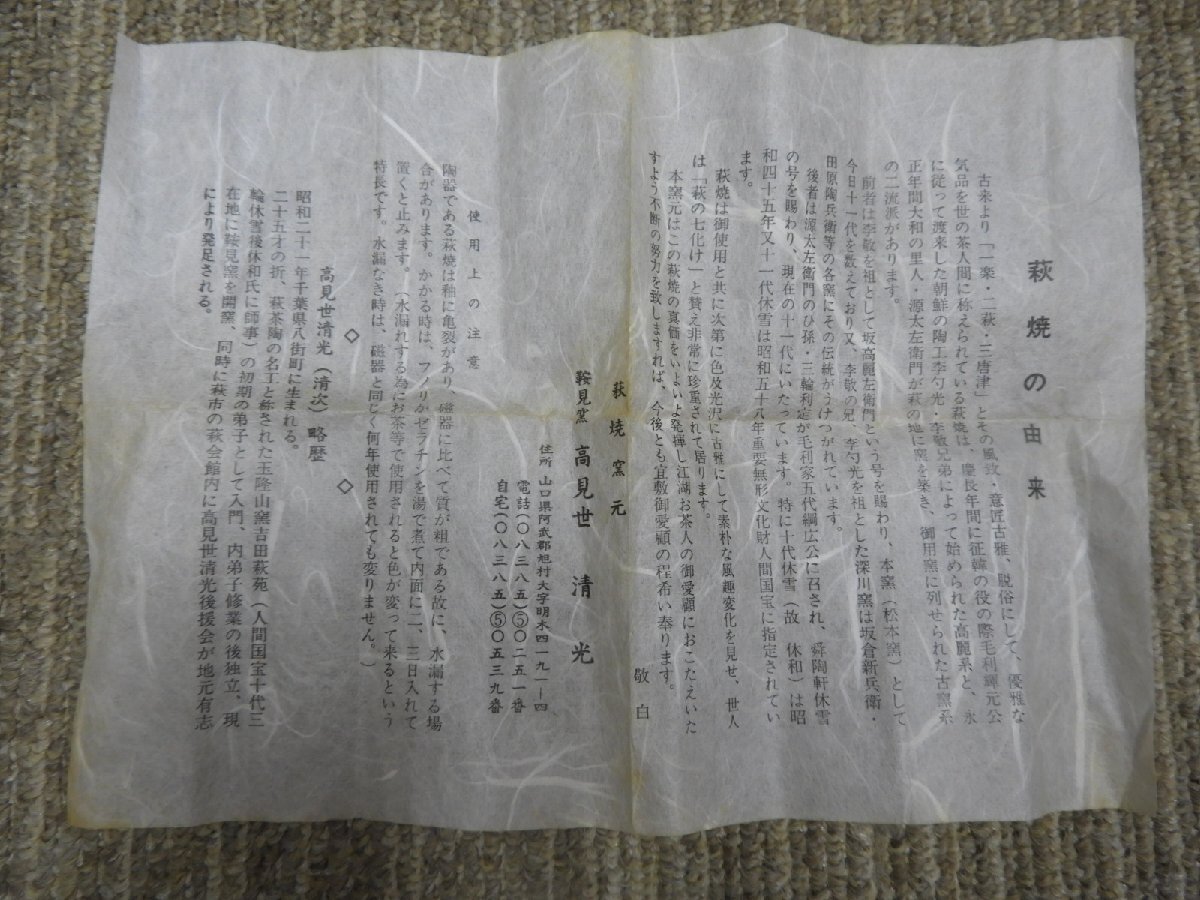 萩焼の由来
古来より「一楽・二萩・三唐津」とその風致・意匠古雅、脱俗にして、優雅な
気品を世の茶人間に称えられている萩焼は、慶長年間に征韓の役の際毛利輝元公
に従って渡来した朝鮮の陶工李勺光・李敬兄弟によって始められた高麗系と、永
正年間大和の里人・源太左衛門が萩の地に窯を築き、御用窯に列せられた古窯系
の二流派があります。
前者は李敬を祖として坂高麗左衛門という号を賜わり、本窯(松本窯)として
今日十一代を数えており又、李敬の兄、李勺光を祖とした深川窯は坂倉新兵衛・
田原陶兵衛等の各窯にその伝統がうけつがれています。
後者は源太左衛門のひ孫・三輪利定が毛利家五代綱広公に召され、舜陶軒休雪
の号を賜わり、現在の十一代にいたっています。特に十代休雪(故 休和)は昭
和四十五年又十一代休雪は昭和五十八年重要無形文化財人間国宝に指定されてい
ます。
萩焼は御使用と共に次第に色及光沢に古雅にして素朴な風趣変化を見せ、世人
は「萩の七化け」と賛え非常に珍重されて居ります。
本窯元はこの萩焼の真価をいよいよ発揮し江湖お茶人の御愛顧におこたえいた
すよう不断の努力を致しますれば、今後とも宜敷御愛顧の程希い奉ります。
敬白
萩焼窯元
鞍見窯 高見世 清光
住所 山口県阿武郡旭村大字明木四一九一ー四
電話(〇八三八五)⑤〇二五一番
自宅(〇八三八五)⑤〇五三九番
使用上の注意
陶器である萩焼は釉に亀裂があり、磁器に比べて質が粗である故に、水漏する場
合があります。かかる時は、フノリかゼラチンを湯で煮て内面に二、三日入れて
置くと止みます。(水漏れする為にお茶等で使用されると色が変って来るという
特長です。水漏なき時は、磁器と同じく何年使用されても変りません。)
◇ ◇
高見世清光(清次)略歴
昭和二十一年千葉県八街町に生まれる。
二十五才の折、萩茶陶の名工と称された玉隆山窯吉田萩苑(人間国宝十代三
輪休雪後休和氏に師事)の初期の弟子として入門、内弟子修業の後独立、現
在地に鞍見窯を開窯、同時に萩市の萩会館内に高見世清光後援会が地元有志
により発足される。